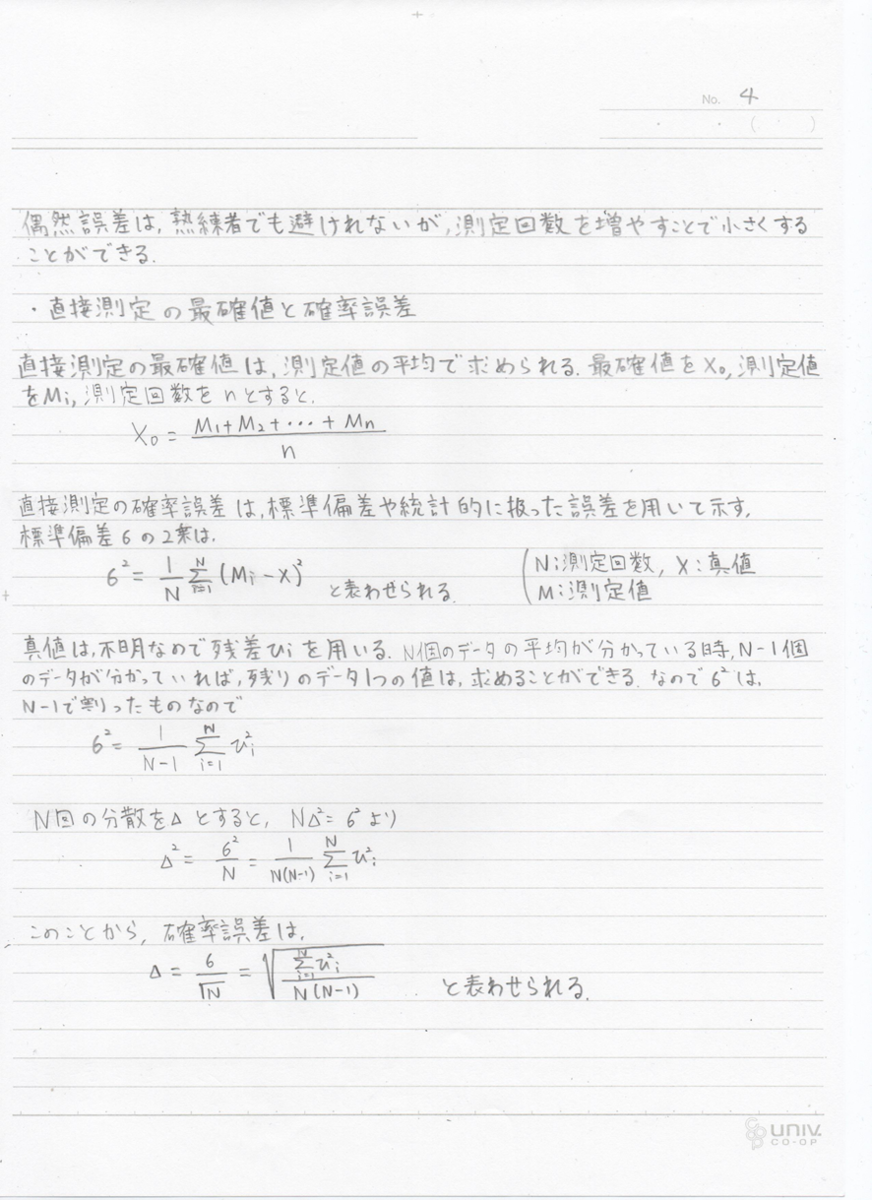 No. 4
( )
偶然誤差は,熟練者でも避けれないが,測定回数を増やすことで小さくする
ことができる.
・直接測定の最確値と確率誤差
直接測定の最確値は,測定値の平均で求められる.最確値をX₀,測定値
をMi,測定回数をnとすると,
X₀ = (M₁+M₂+…+Mn)/n
直接測定の確率誤差は,標準偏差や統計的に扱った誤差を用いて示す.
標準偏差6の2乗は,
6² = 1/N Σ_{i=1}^{N} (Mi-X)² と表わせられる. (N:測定回数, X:真値
M:測定値
真値は,不明なので残差νiを用いる.N個のデータの平均が分かっている時,N-1個
のデータが分かっていれば,残りのデータ1つの値は,求めることができる.なので6²は,
N-1で割ったものなので
6² = 1/(N-1) Σ_{i=1}^{N} ν²i
N回の分散をΔとすると, NΔ²=6²より
Δ² = 6²/N = 1/(N(N-1)) Σ_{i=1}^{N} ν²i
このことから,確率誤差は,
Δ = 6/√N = √(Σ_{i=1}^{N} ν²i / N(N-1)) と表わせられる.
UNIV.
CO-OP